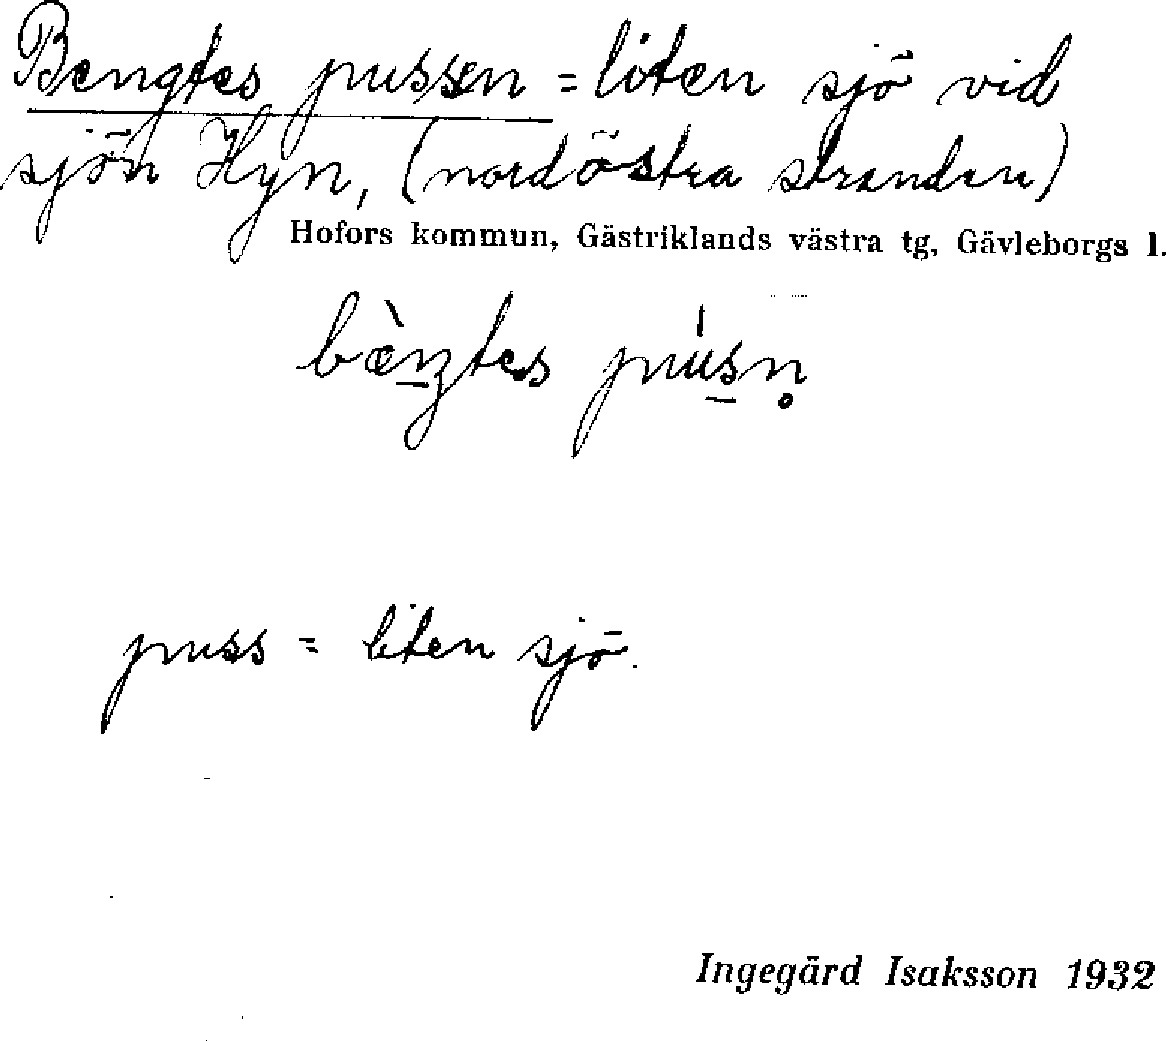 Bengtes pussen = liten sjö vid
sjön Hyn, (nordöstra stranden)
Hofors kommun, Gästriklands västra tg, Gävleborgs l.
bæ̀ŋtes pús̠n̥
puss = liten sjö.
Ingegärd Isaksson 1932